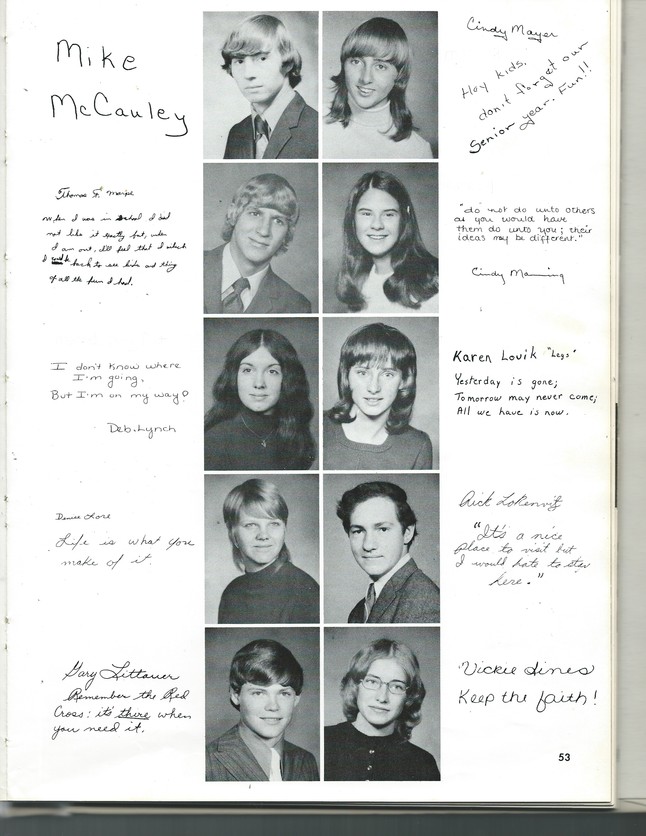 Mike
McCauley
Cindy Mayer
Hey kids.
don't forget our
Senior year. Fun!!
Thomas F.
When I was in school I did
not like it mostly but, when
I am out, I'll feel that I wish
I back to see kids and thing
of all the fun I had.
"do not do unto others
as you would have
them do unto you; their
ideas may be different."
Cindy Manning
I don't know where
I'm going,
But I'm on my way?
Deb. Lynch
Karen Lovik "Legs"
Yesterday is gone;
Tomorrow may never come;
All we have is now.
Denise Lore
Life is what you
make of it.
Rick
"It's a nice
place to visit but
I would hate to stay
here."
Gary Littauer
Remember the Red
Cross: it's there when
you need it.
Vickie Lines
Keep the faith!
53